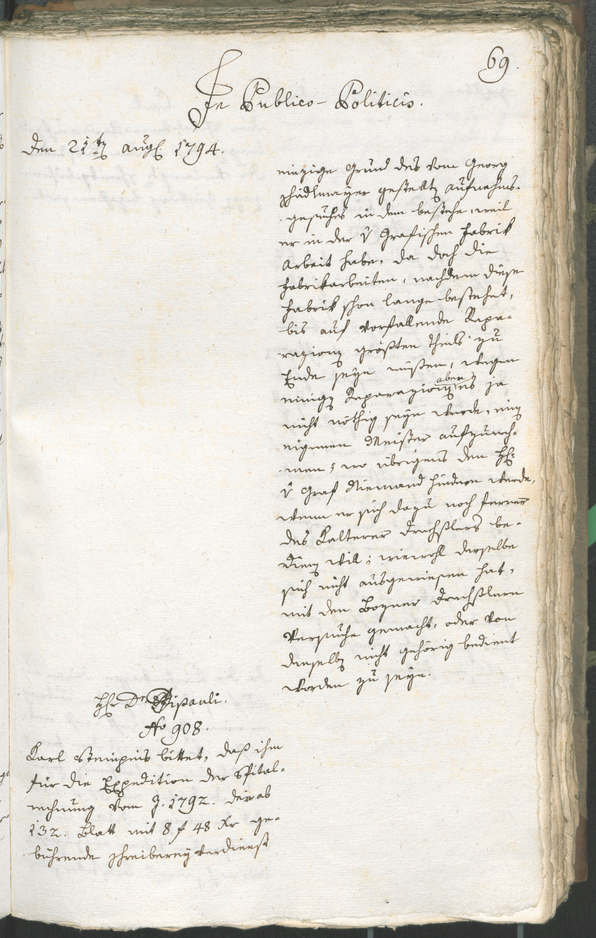 69.
In Publico-Politicis.
Den 21t. Augt 1794.
einzige Grund des vom Georg
gestellten Aufnahms-
gesuches in dem bestehe, weil
er in der v Grafischen Fabrik
Arbeit habe, da doch die
Fabrikarbeiten, nachdem diese
Fabrik schon lange bestehet,
bis auf vorfallende Repa-
razionen größten Theils zu
Ende seyn müßen, wegen
einigen Reparazionen aber es ja
nicht nöthig seyn werde, einen
eigenen Meister aufzuneh-
men; wo übrigens den Hh:
v Graf Niemand hindern werde,
wenn er sich dazu noch ferner
des Kalterer Drechslers be-
dienen will; wiewohl derselbe
sich nicht ausgewiesen hat,
mit den Bozner Drechslern
Versuche gemacht, oder von
denselben nicht gehörig bedient
worden zu seyn.
Hr Dr Dipauli.
No 908.
Karl bittet, daß ihm
für die Expedition der Spital-
rechnung vom J. 1792. der ab
132. Blatt mit 8 f 48 Kr ge-
bührende Schreibereyverdienst